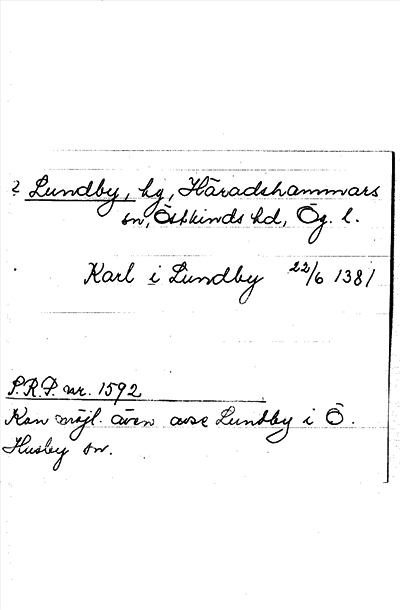 ? Lundby, hg, Häradshammars
sn, Östkinds hd, Ög. l.
Karl i Lundby 22/6 1381
P.R.P. nr. 1592
Kan möjl. även avse Lundby i Ö.
Husby sn.